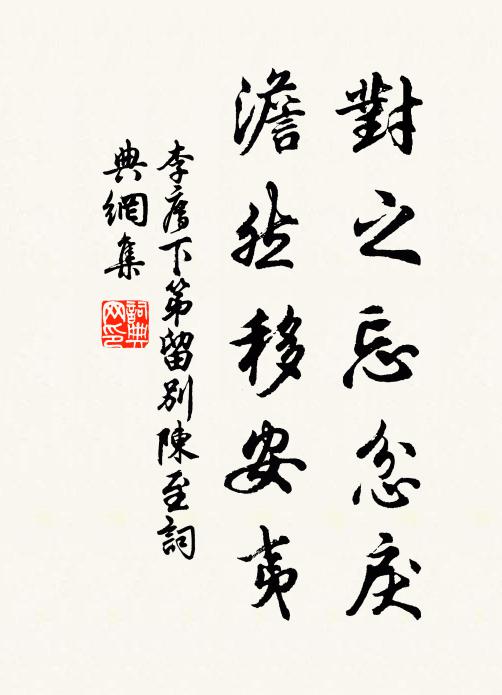 對之忘忿戾
澹然移安夷
李廌下第留別陳至詞
典網集
詞典
网印